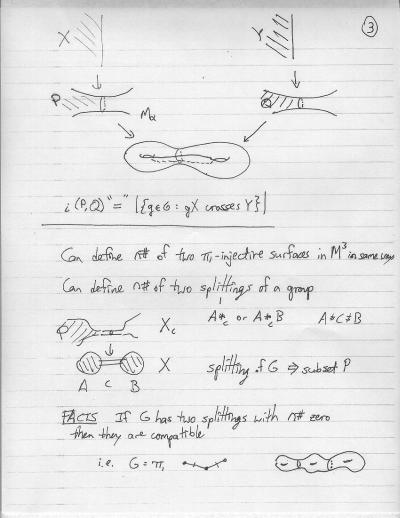 3
X
Y
P
Mα
Q
i(P,Q) "=" |{g∈G : gX crosses Y}|
Can define n# of two π₁-injective surfaces in M³ in same way
Can define n# of two splittings of a group
A*_C or A*_C B A≠C≠B
P
X_C
X
splitting of G ⇒ subset P
A C B
FACTS If G has two splittings with n# zero
then they are compatible
i.e. G = π₁